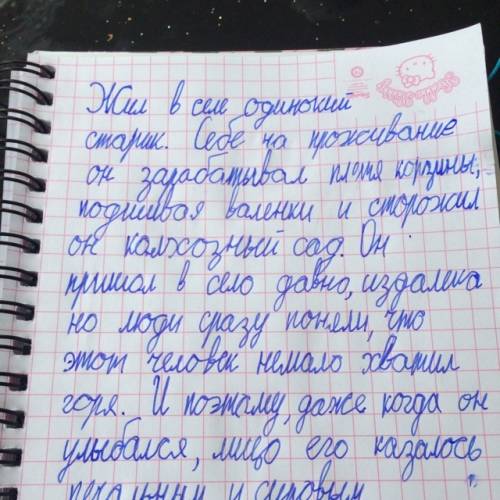 Жил в селе одинокий
старик. Себе на проживание
он зарабатывал плетя корзины,
подшивая валенки и сторожил
он колхозный сад. Он
пришол в село давно, издалека
но люди сразу поняли, что
этот человек немало хватил
горя. И поэтаму, даже когда он
улыбался, лицо его казалось
печальным и суровым